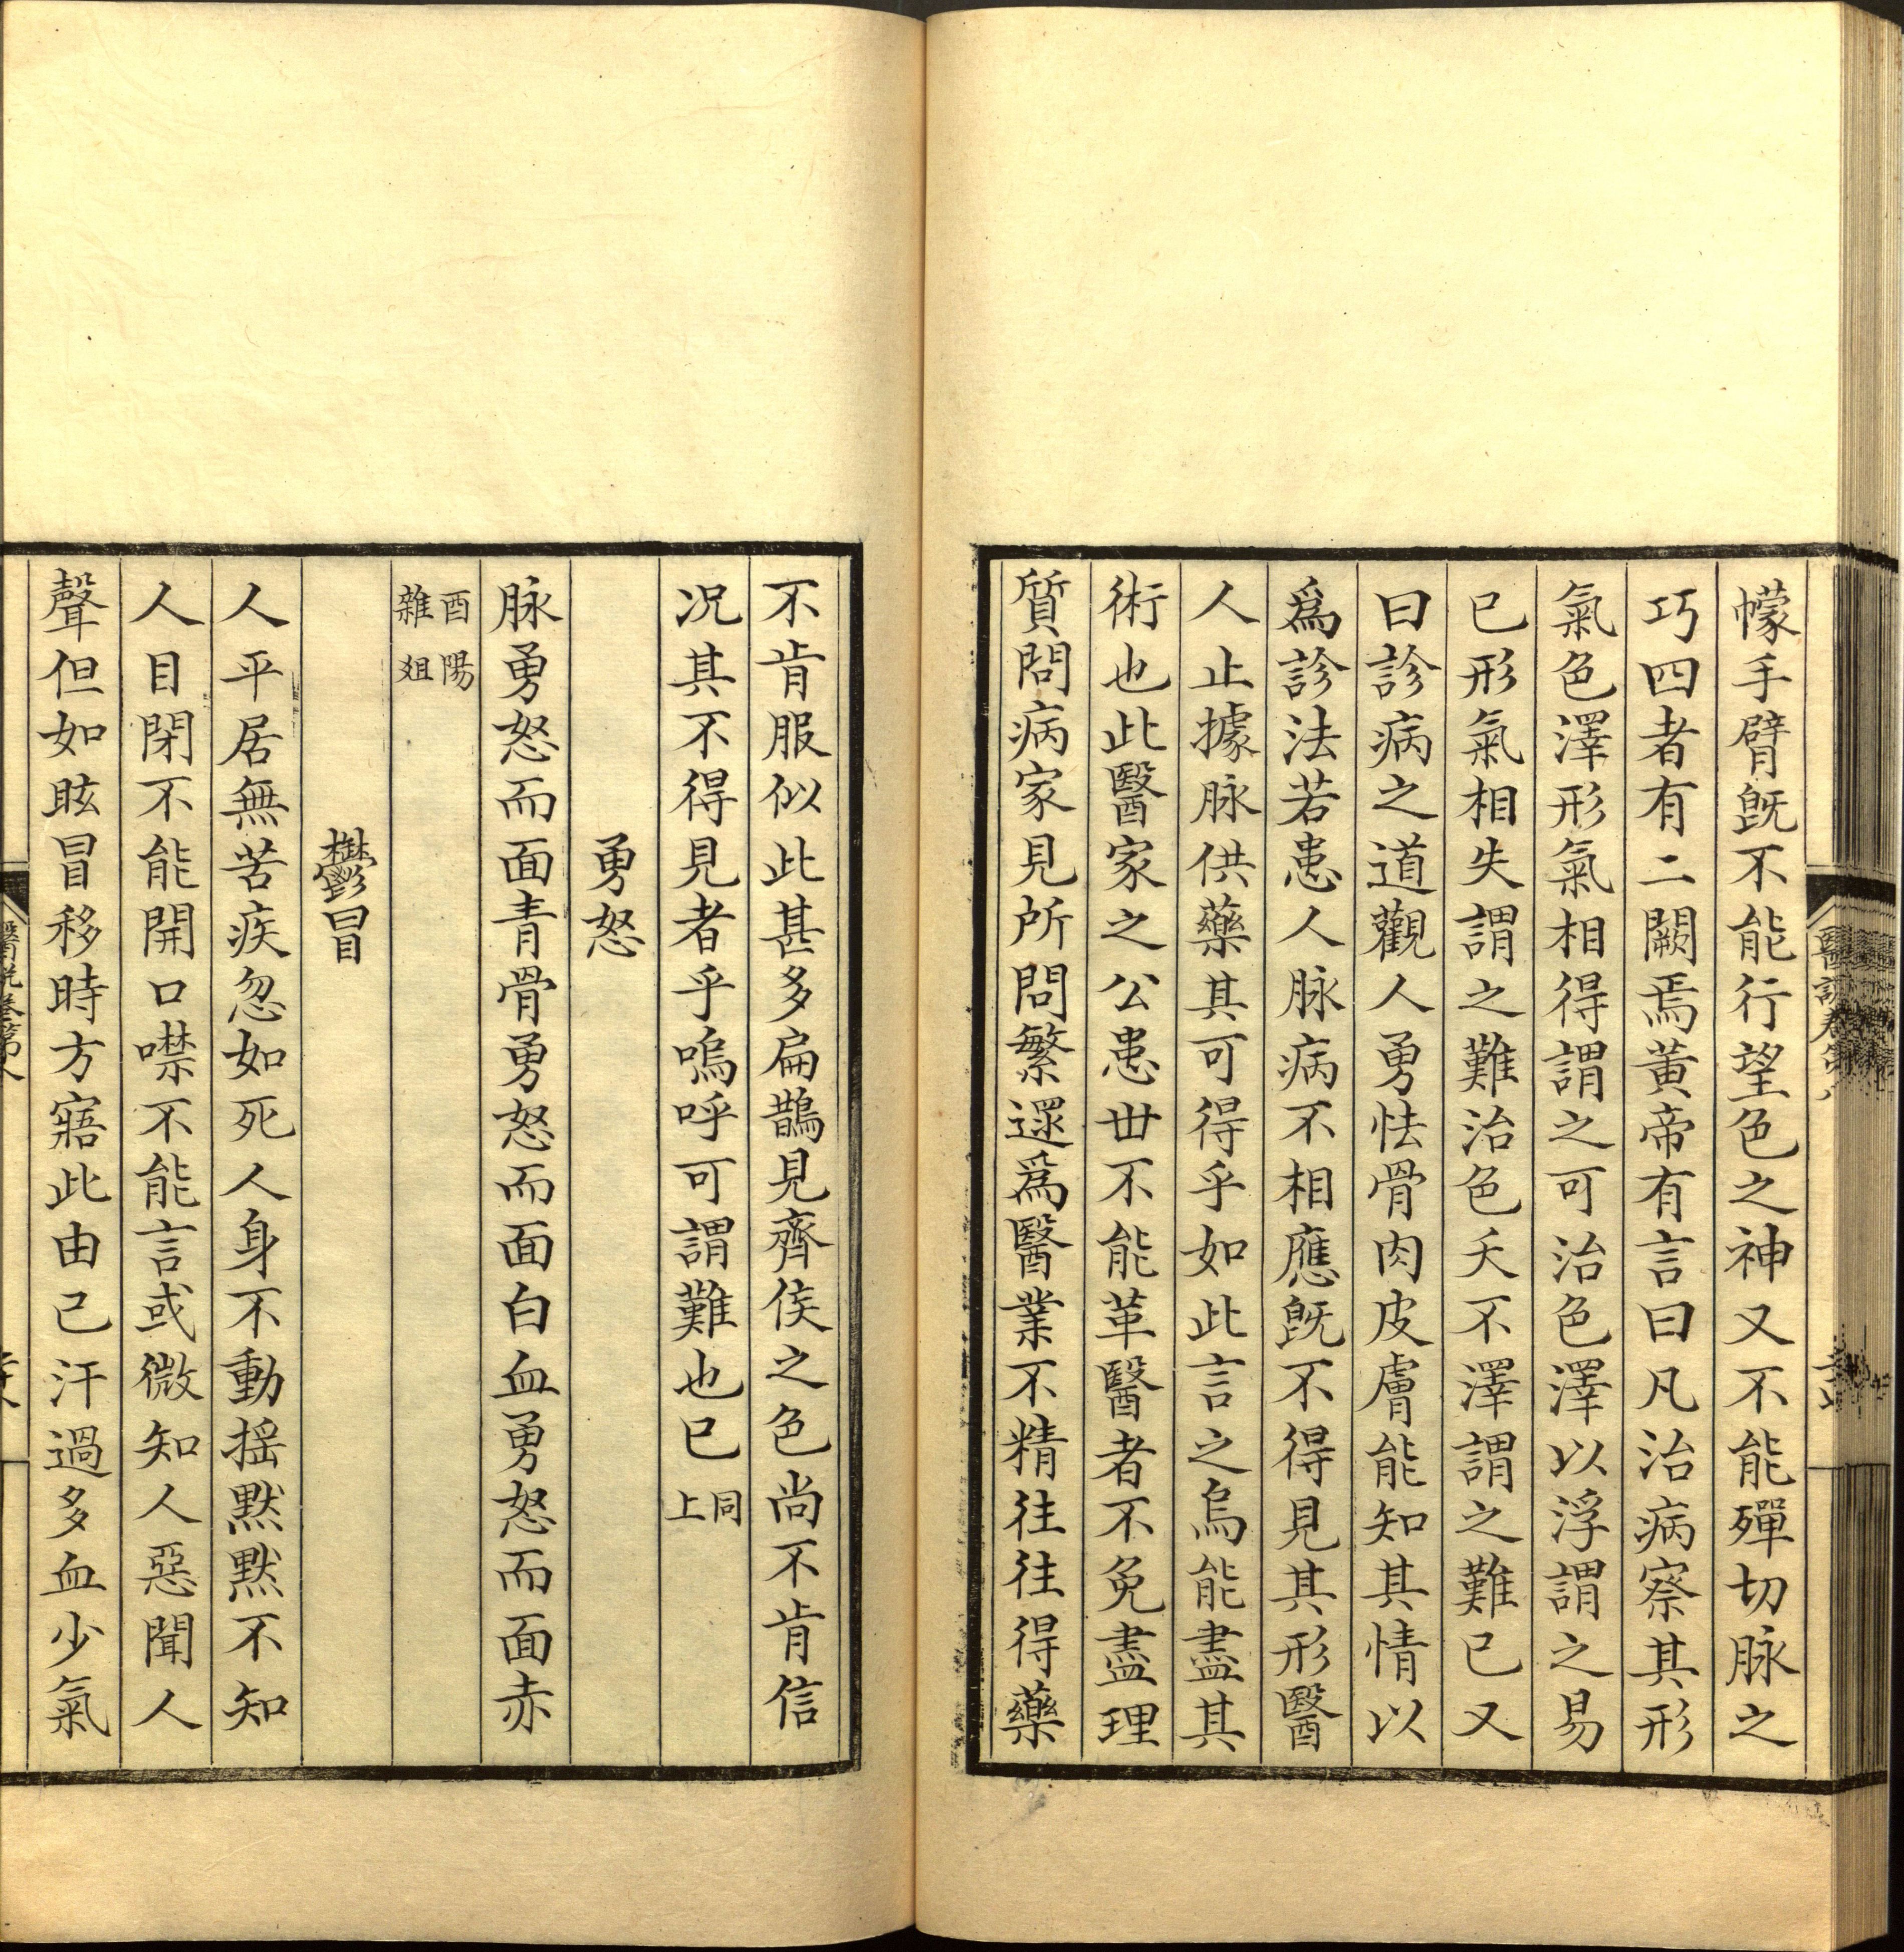 幪手臂既不能行望色之神又不能殫切脉之
巧四者有二闕焉黄帝有言曰凡治病察其形
氣色澤形氣相得謂之可治色澤以浮謂之易
已形氣相失謂之難治色夭不澤謂之難已又
曰診病之道觀人勇怯骨肉皮膚能知其情以
爲診法若患人脉病不相應既不得見其形醫
人止據脉供藥其可得乎如此言之烏能盡其
術也此醫家之公患世不能革醫者不免盡理
質問病家見所問繁還爲醫業不精往往得藥
不肯服似此甚多扁鵲見齊侯之色尚不肯信
况其不得見者乎嗚呼可謂難也已 同上
勇怒
脉勇怒而面青骨勇怒而面白血勇怒而面赤
酉陽
雜俎
鬱冒
人平居無苦疾忽如死人身不動揺黙黙不知
人目閉不能開口噤不能言或微知人惡聞人
聲但如眩冒移時方寤此由已汗過多血少氣
醫説卷第八